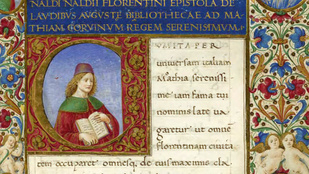 NALDI NALDII FLORENTINI EPISTOLA DE
LAVDIBVS AVGVSTE BIBLIOTHECAE AD MA
THIAM CORVINVM REGEM SERENISSIMVM.
VVLTA PER
universam italiam
Mathia serenissi
me iam fama tui
nominis late va
garetur ut omnē
florentinam civita
tem occuparet omnesq. de